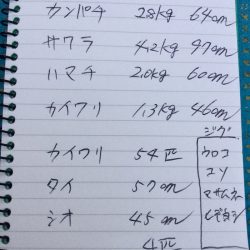 カンパチ 2.8kg 64cm
サワラ 4.2kg 97cm
ハマチ 2.0kg 60cm
カイワリ 1.3kg 46cm
カイワリ 54匹
タイ 57cm
シオ 45cm
4匹
ジグ
ウロコ
ユソ
マサムネ